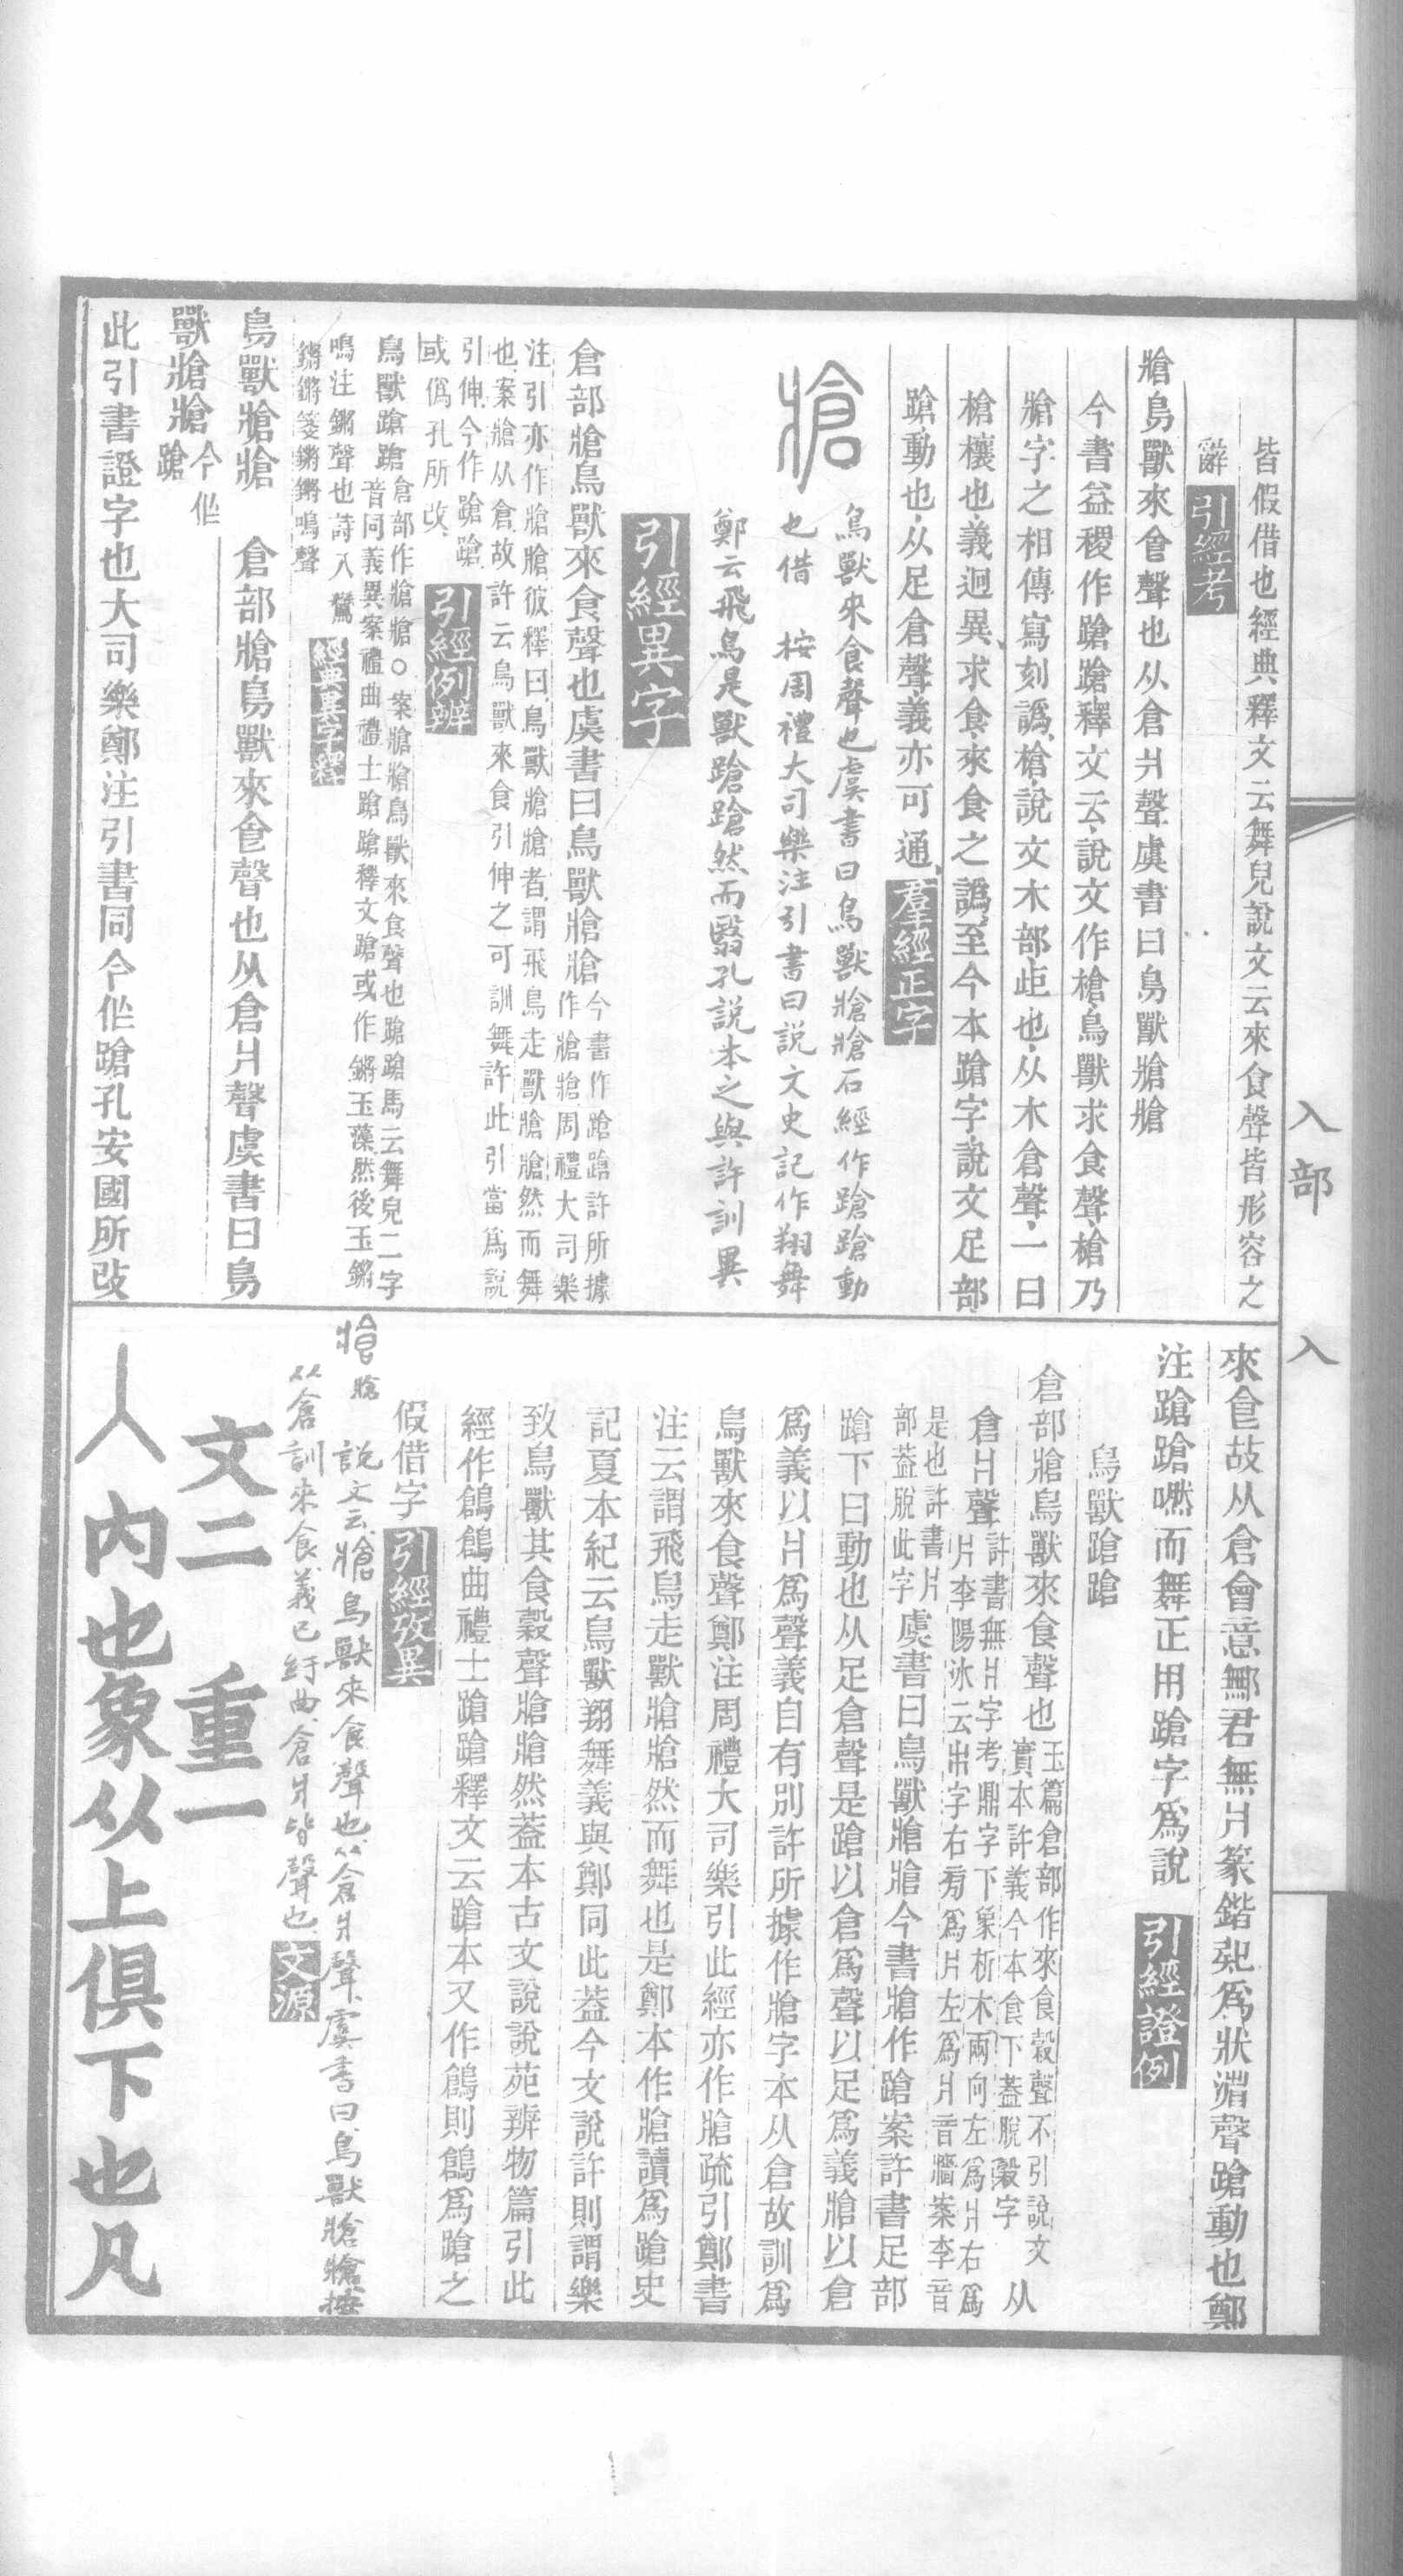 皆假借也經典釋文云舞皃說文云來食聲皆形容之
辭 引經考
牄鳥獸來食聲也从倉爿聲虞書曰鳥獸牄牄
今書益稷作蹌蹌釋文云說文作槍鳥獸求食聲槍乃
牄字之相傳寫刻譌槍說文木部歫也从木倉聲一曰
槍欀也義迥異求食來食之譌至今本蹌字說文足部
蹌動也从足倉聲義亦可通 羣經正字
牄
鳥獸來食聲也虞書曰鳥獸牄牄石經作蹌蹌動
也借 按周禮大司樂注引書曰說文史記作翔舞
鄭云飛鳥是獸蹌蹌然而翳孔說本之與許訓異
引經異字
倉部牄鳥獸來食聲也虞書曰鳥獸牄牄 今書作蹌蹌許所據
作牄牄周禮大司樂
注引亦作牄牄彼釋曰鳥獸牄牄者謂飛鳥走獸牄牄然而舞
也案牄从倉故許云鳥獸來食引伸之可訓舞許此引當爲說
引伸今作蹌蹌
或僞孔所改 引經例辨
鳥獸蹌蹌 倉部作牄牄○案牄牄鳥獸來食聲也蹌蹌馬云舞皃二字
音同義異案禮曲禮士蹌蹌釋文蹌或作鏘玉藻然後玉鏘
鳴注鏘聲也詩八鸞
鏘鏘箋鏘鏘鳴聲 經典異字釋
鳥獸牄牄 倉部牄鳥獸來食聲也从倉爿聲虞書曰鳥
獸牄牄 今作
蹌
此引書證字也大司樂鄭注引書同今作蹌孔安國所改
入部 入
來食故从倉會意鄦君無爿篆鍇䢃爲狀湝聲蹌動也鄭
注蹌蹌嘫而舞正用蹌字爲說 引經證例
鳥獸蹌蹌
倉部牄鳥獸來食聲也 玉篇倉部作來食穀聲不引說文
實本許義今本食下蓋脫穀字 从
倉爿聲 許書無爿字考鼎字下象析木兩向左爲爿右爲
片李陽冰云出字右旁爲片左爲爿音牆案李音
是也許書片
部蓋脫此字 虞書曰鳥獸牄牄今書牄作蹌案許書足部
蹌下曰動也从足倉聲是蹌以倉爲聲以足爲義牄以倉
爲義以爿爲聲義自有別許所據作牄字本从倉故訓爲
鳥獸來食聲鄭注周禮大司樂引此經亦作牄疏引鄭書
注云謂飛鳥走獸牄牄然而舞也是鄭本作牄讀爲蹌史
記夏本紀云鳥獸翔舞義與鄭同此蓋今文說許則謂樂
致鳥獸其食穀聲牄牄然蓋本古文說說苑辨物篇引此
經作鶬鶬曲禮士蹌蹌釋文云蹌本又作鶬則鶬爲蹌之
假借字 引經攷異
牄 牄 說文云牄鳥獸來食聲也从倉爿聲虞書曰鳥獸牄牄按
从倉訓來食義已紆曲倉爿皆聲也 文源
文二 重一
入 內也象从上俱下也凡